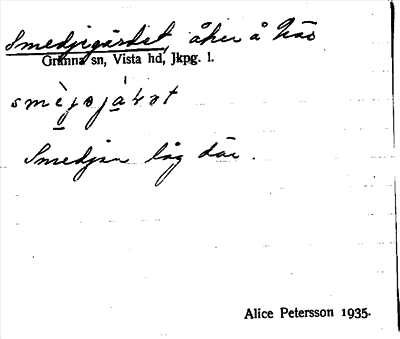 Smedjegärdet, åker å
Gränna sn, Vista hd, Jkpg. l.
Smedjan låg där.
Alice Petersson 1935.